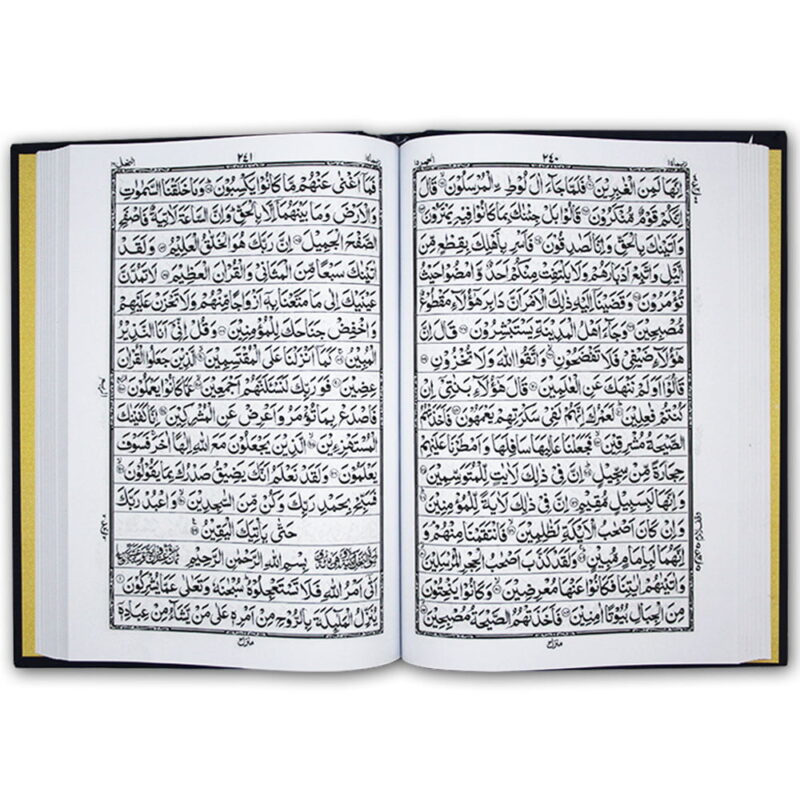 الحجر ١٥
٢٤٠
ربما ١٤
اِنَّهَا لَمِنَ الْغٰبِرِيْنَ فَلَمَّا جَآءَ اٰلَ لُوْطِ ِۨالْمُرْسَلُوْنَ قَالَ
اِنَّكُمْ قَوْمٌ مُّنْكَرُوْنَ قَالُوْا بَلْ جِئْنٰكَ بِمَا كَانُوْا فِيْهِ يَمْتَرُوْنَ
وَ اَتَيْنٰكَ بِالْحَقِّ وَ اِنَّا لَصٰدِقُوْنَ فَاَسْرِ بِاَهْلِكَ بِقِطْعٍ مِّنَ
الَّيْلِ وَ اتَّبِعْ اَدْبَارَهُمْ وَ لَا يَلْتَفِتْ مِنْكُمْ اَحَدٌ وَّ امْضُوْا حَيْثُ
تُؤْمَرُوْنَ وَ قَضَيْنَاۤ اِلَيْهِ ذٰلِكَ الْاَمْرَ اَنَّ دَابِرَ هٰۤؤُلَآءِ مَقْطُوْعٌ
مُّصْبِحِيْنَ وَ جَآءَ اَهْلُ الْمَدِيْنَةِ يَسْتَبْشِرُوْنَ قَالَ اِنَّ
هٰۤؤُلَآءِ ضَيْفِيْ فَلَا تَفْضَحُوْنِ وَ اتَّقُوا اللّٰهَ وَ لَا تُخْزُوْنِ
قَالُوْۤا اَوَ لَمْ نَنْهَكَ عَنِ الْعٰلَمِيْنَ قَالَ هٰۤؤُلَآءِ بَنٰتِيْۤ اِنْ
كُنْتُمْ فٰعِلِيْنَ لَعَمْرُكَ اِنَّهُمْ لَفِيْ سَكْرَتِهِمْ يَعْمَهُوْنَ فَاَخَذَتْهُمُ
الصَّيْحَةُ مُشْرِقِيْنَ فَجَعَلْنَا عَالِيَهَا سَافِلَهَا وَ اَمْطَرْنَا عَلَيْهِمْ
حِجَارَةً مِّنْ سِجِّيْلٍ اِنَّ فِيْ ذٰلِكَ لَاٰيٰتٍ لِّلْمُتَوَسِّمِيْنَ
وَ اِنَّهَا لَبِسَبِيْلٍ مُّقِيْمٍ اِنَّ فِيْ ذٰلِكَ لَاٰيَةً لِّلْمُؤْمِنِيْنَ
وَ اِنْ كَانَ اَصْحٰبُ الْاَيْكَةِ لَظٰلِمِيْنَ فَانْتَقَمْنَا مِنْهُمْ وَ
اِنَّهُمَا لَبِاِمَامٍ مُّبِيْنٍ وَ لَقَدْ كَذَّبَ اَصْحٰبُ الْحِجْرِ الْمُرْسَلِيْنَ
وَ اٰتَيْنٰهُمْ اٰيٰتِنَا فَكَانُوْا عَنْهَا مُعْرِضِيْنَ وَ كَانُوْا يَنْحِتُوْنَ
مِنَ الْجِبَالِ بُيُوْتًا اٰمِنِيْنَ فَاَخَذَتْهُمُ الصَّيْحَةُ مُصْبِحِيْنَ
منزل ٣
٢٤١
فَمَاۤ اَغْنٰى عَنْهُمْ مَّا كَانُوْا يَكْسِبُوْنَ وَ مَا خَلَقْنَا السَّمٰوٰتِ
وَ الْاَرْضَ وَ مَا بَيْنَهُمَاۤ اِلَّا بِالْحَقِّ وَ اِنَّ السَّاعَةَ لَاٰتِيَةٌ فَاصْفَحِ
الصَّفْحَ الْجَمِيْلَ اِنَّ رَبَّكَ هُوَ الْخَلّٰقُ الْعَلِيْمُ وَ لَقَدْ
اٰتَيْنٰكَ سَبْعًا مِّنَ الْمَثَانِيْ وَ الْقُرْاٰنَ الْعَظِيْمَ لَا تَمُدَّنَّ
عَيْنَيْكَ اِلٰى مَا مَتَّعْنَا بِهٖۤ اَزْوَاجًا مِّنْهُمْ وَ لَا تَحْزَنْ عَلَيْهِمْ
وَ اخْفِضْ جَنَاحَكَ لِلْمُؤْمِنِيْنَ وَ قُلْ اِنِّيْۤ اَنَا النَّذِيْرُ
الْمُبِيْنُ كَمَاۤ اَنْزَلْنَا عَلَى الْمُقْتَسِمِيْنَ الَّذِيْنَ جَعَلُوا الْقُرْاٰنَ
عِضِيْنَ فَوَ رَبِّكَ لَنَسْـَٔلَنَّهُمْ اَجْمَعِيْنَ عَمَّا كَانُوْا يَعْمَلُوْنَ
فَاصْدَعْ بِمَا تُؤْمَرُ وَ اَعْرِضْ عَنِ الْمُشْرِكِيْنَ اِنَّا كَفَيْنٰكَ
الْمُسْتَهْزِءِيْنَ الَّذِيْنَ يَجْعَلُوْنَ مَعَ اللّٰهِ اِلٰهًا اٰخَرَ فَسَوْفَ
يَعْلَمُوْنَ وَ لَقَدْ نَعْلَمُ اَنَّكَ يَضِيْقُ صَدْرُكَ بِمَا يَقُوْلُوْنَ
فَسَبِّحْ بِحَمْدِ رَبِّكَ وَ كُنْ مِّنَ السّٰجِدِيْنَ وَ اعْبُدْ رَبَّكَ
حَتّٰى يَاْتِيَكَ الْيَقِيْنُ
بِسْمِ اللّٰهِ الرَّحْمٰنِ الرَّحِيْمِ
اَتٰۤى اَمْرُ اللّٰهِ فَلَا تَسْتَعْجِلُوْهُ سُبْحٰنَهٗ وَ تَعٰلٰى عَمَّا يُشْرِكُوْنَ
يُنَزِّلُ الْمَلٰٓئِكَةَ بِالرُّوْحِ مِنْ اَمْرِهٖ عَلٰى مَنْ يَّشَآءُ مِنْ عِبَادِهٖۤ
منزل ٣